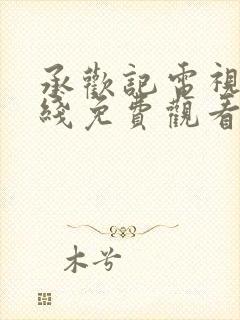 承歡記電視
綫免費觀看
木兮